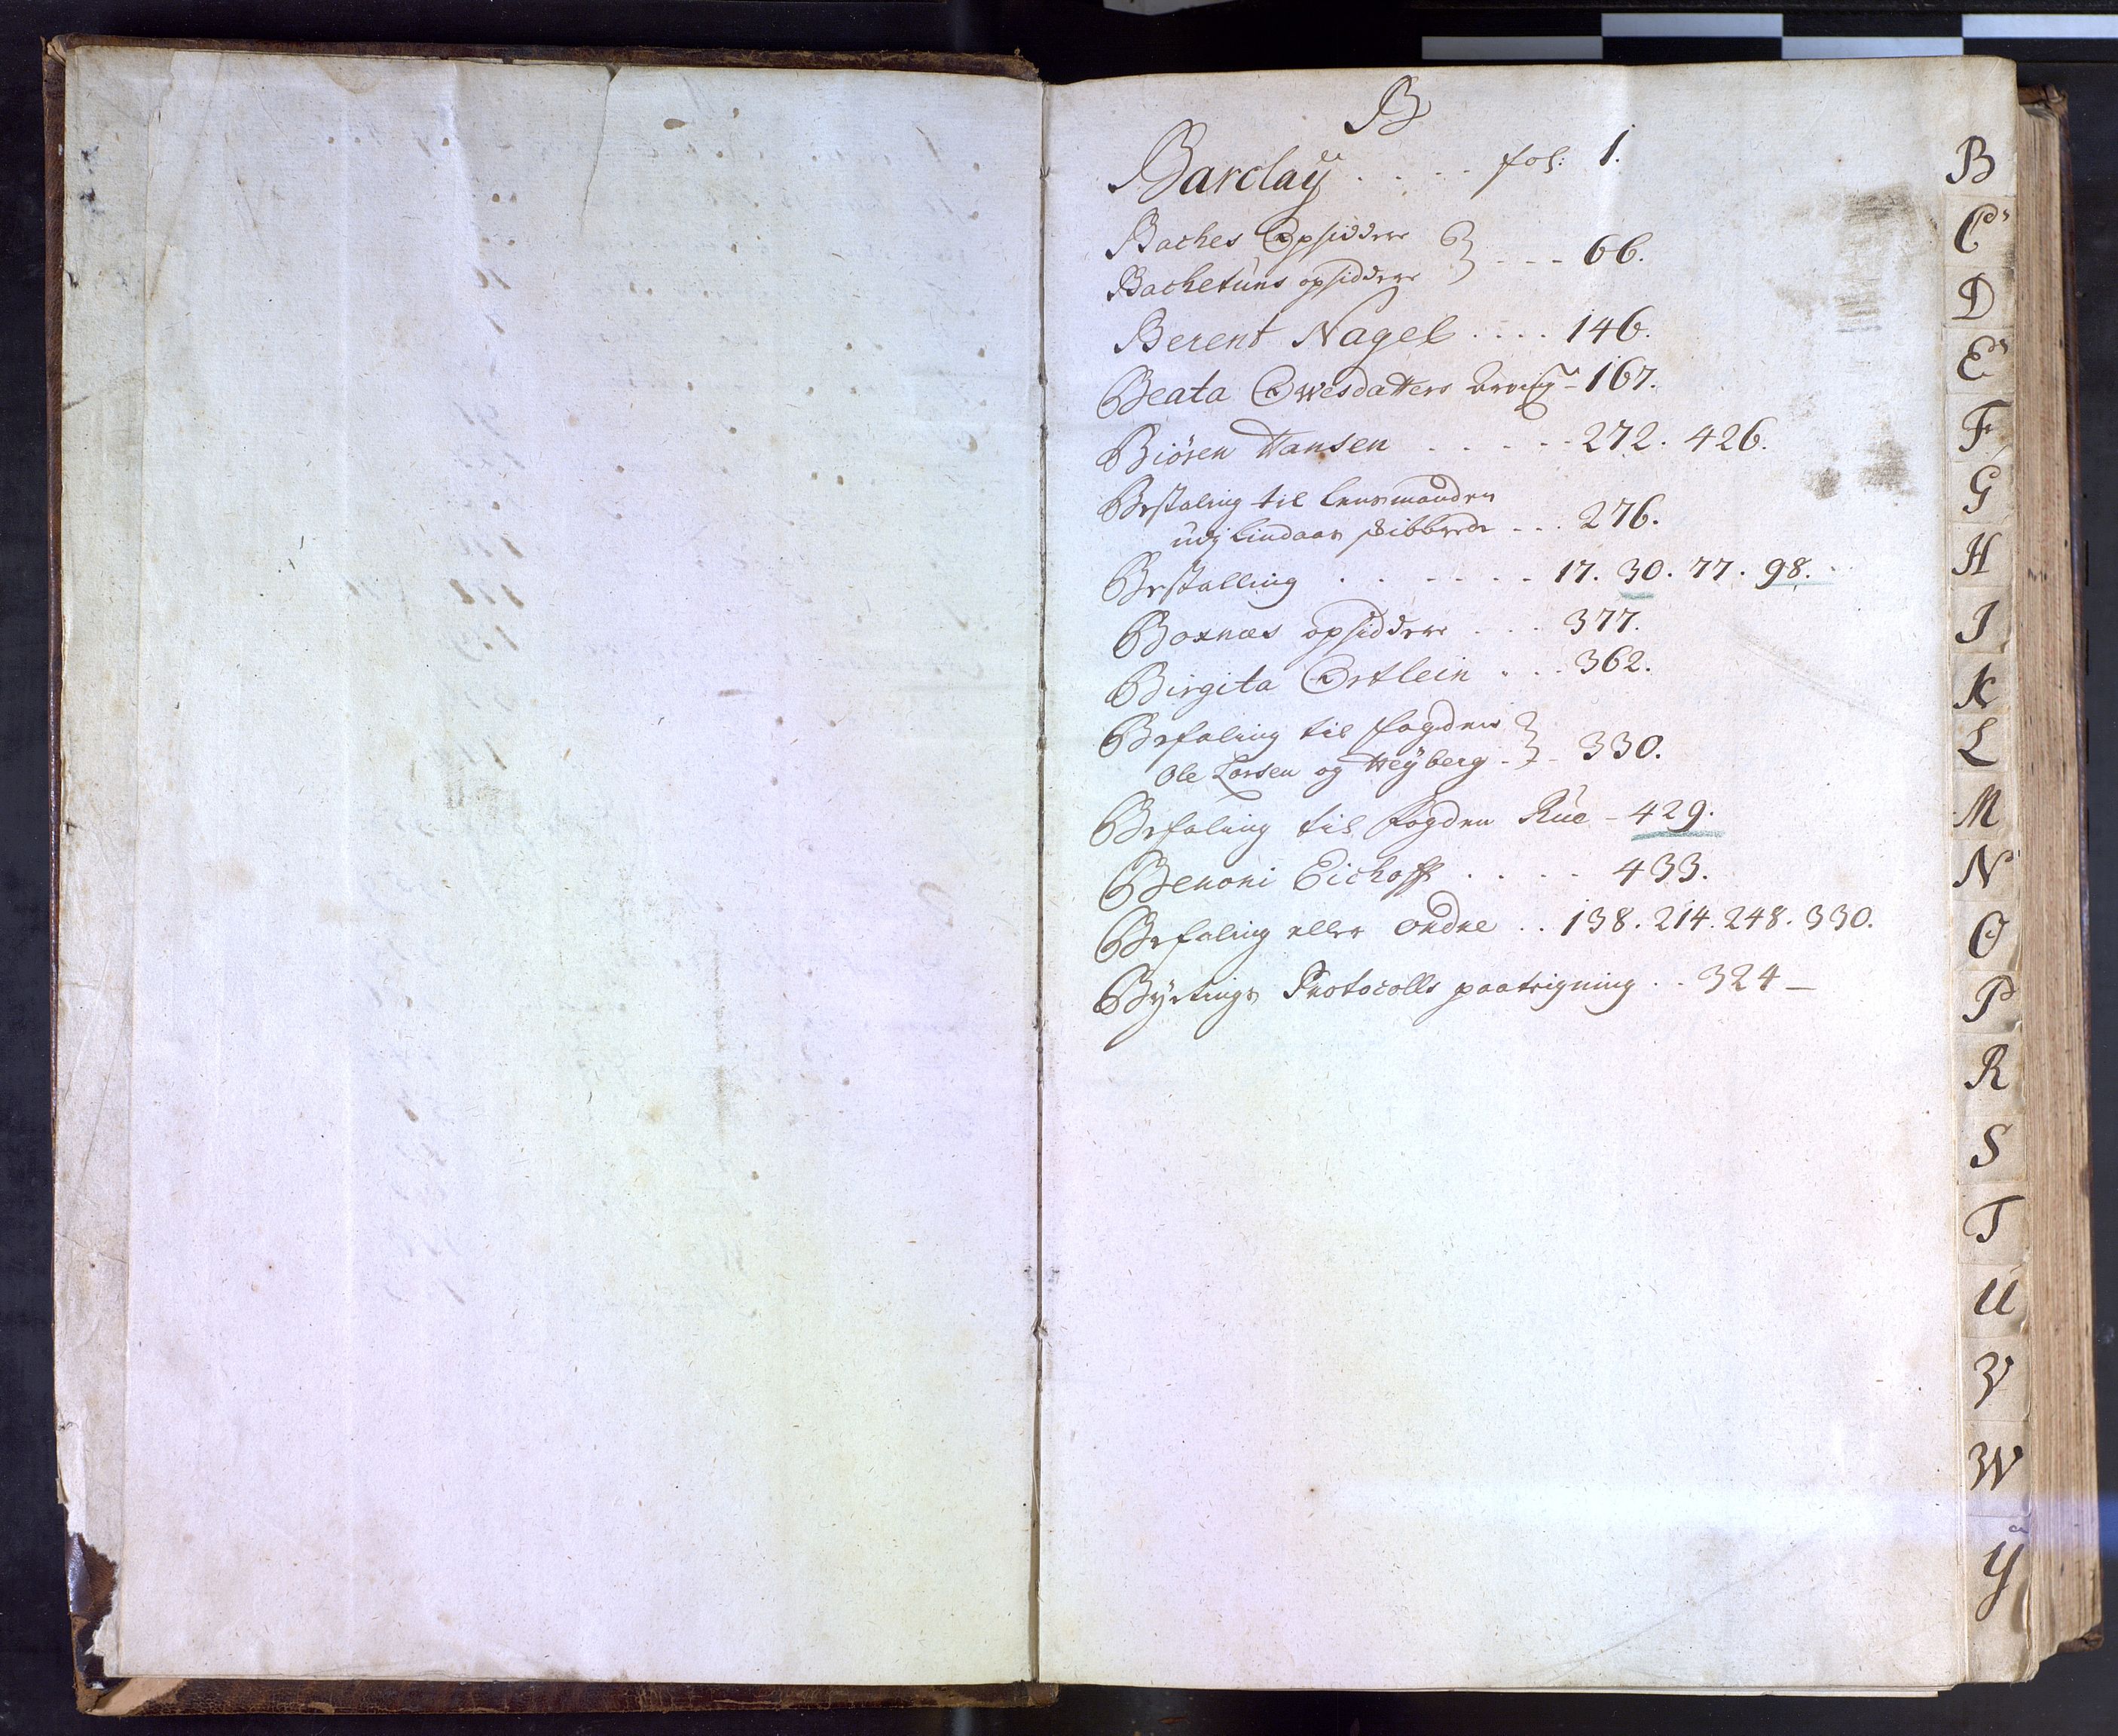 B
Barclay . . . . . fol: 1.
Baches Opsiddere
Bachetuns opsiddere } - - - 66.
Berent Nagel . . . . 146.
Beata Owesdatters - 167.
Biören Hansen . . . . . 272. 426.
Bestaling til Lensmanden
udj Lindaas Skibbrede - . . 276.
Bestalling . . . . . . 17. 30. 77. 98.
Boxnæs opsiddere . . . 377.
Birgita Ortlein . . . 362.
Befaling til fogderne
Ole Larsen og Heÿberg - } - 330.
Befaling til fogden Rüe - 429.
Benoni Eichoff . . . . 433.
Befaling eller Ordre . . 138. 214. 248. 330.
Protocolls . . 324 -
B
C
D
E
F
G
H
I
K
L
M
N
O
P
R
S
T
U
V
W
Y